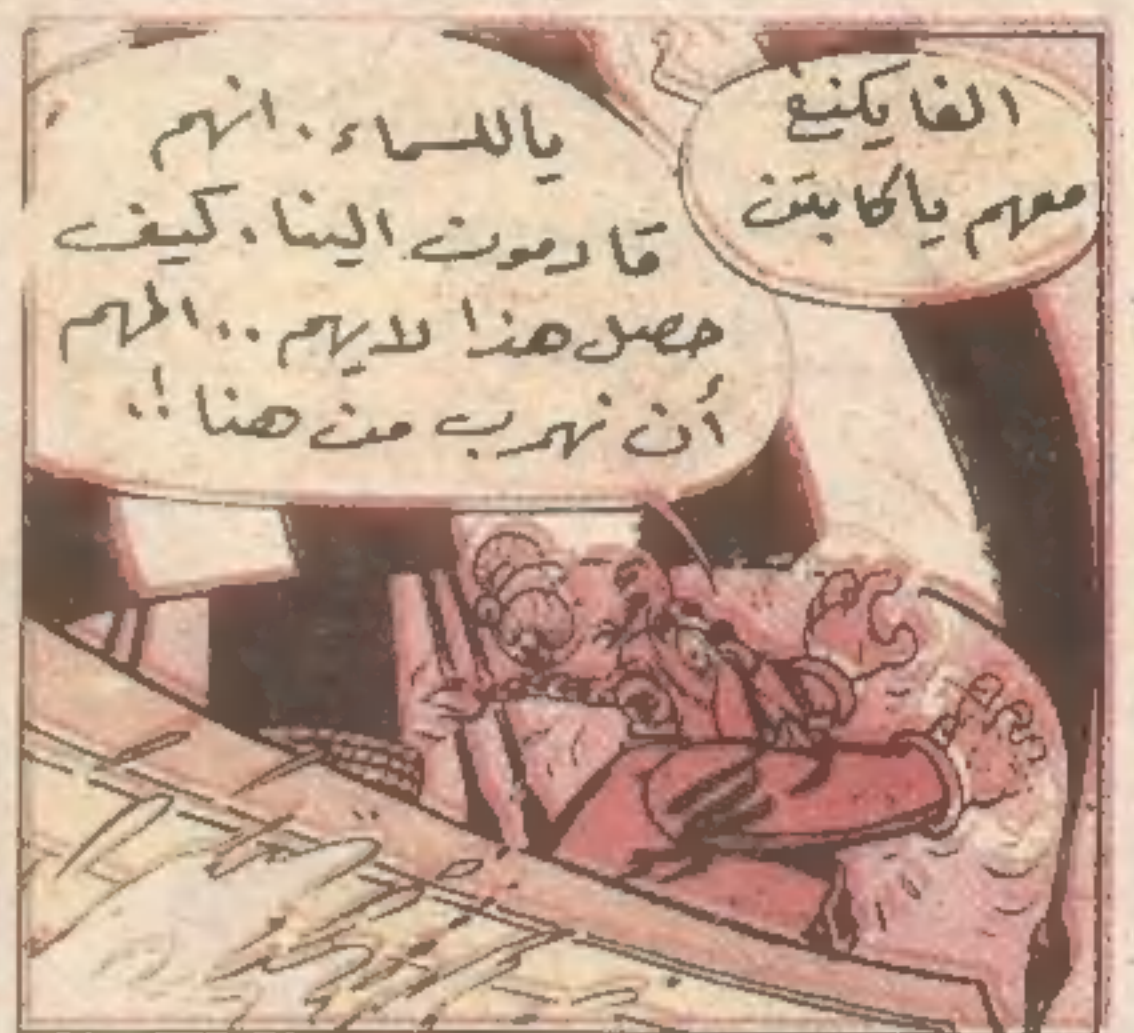 الفايكنغ
معهم ياكابتن
ياللسماء. انهم
قادمون الينا. كيف
حصل هذا لايهم.. المهم
أن نهرب من هنا!!